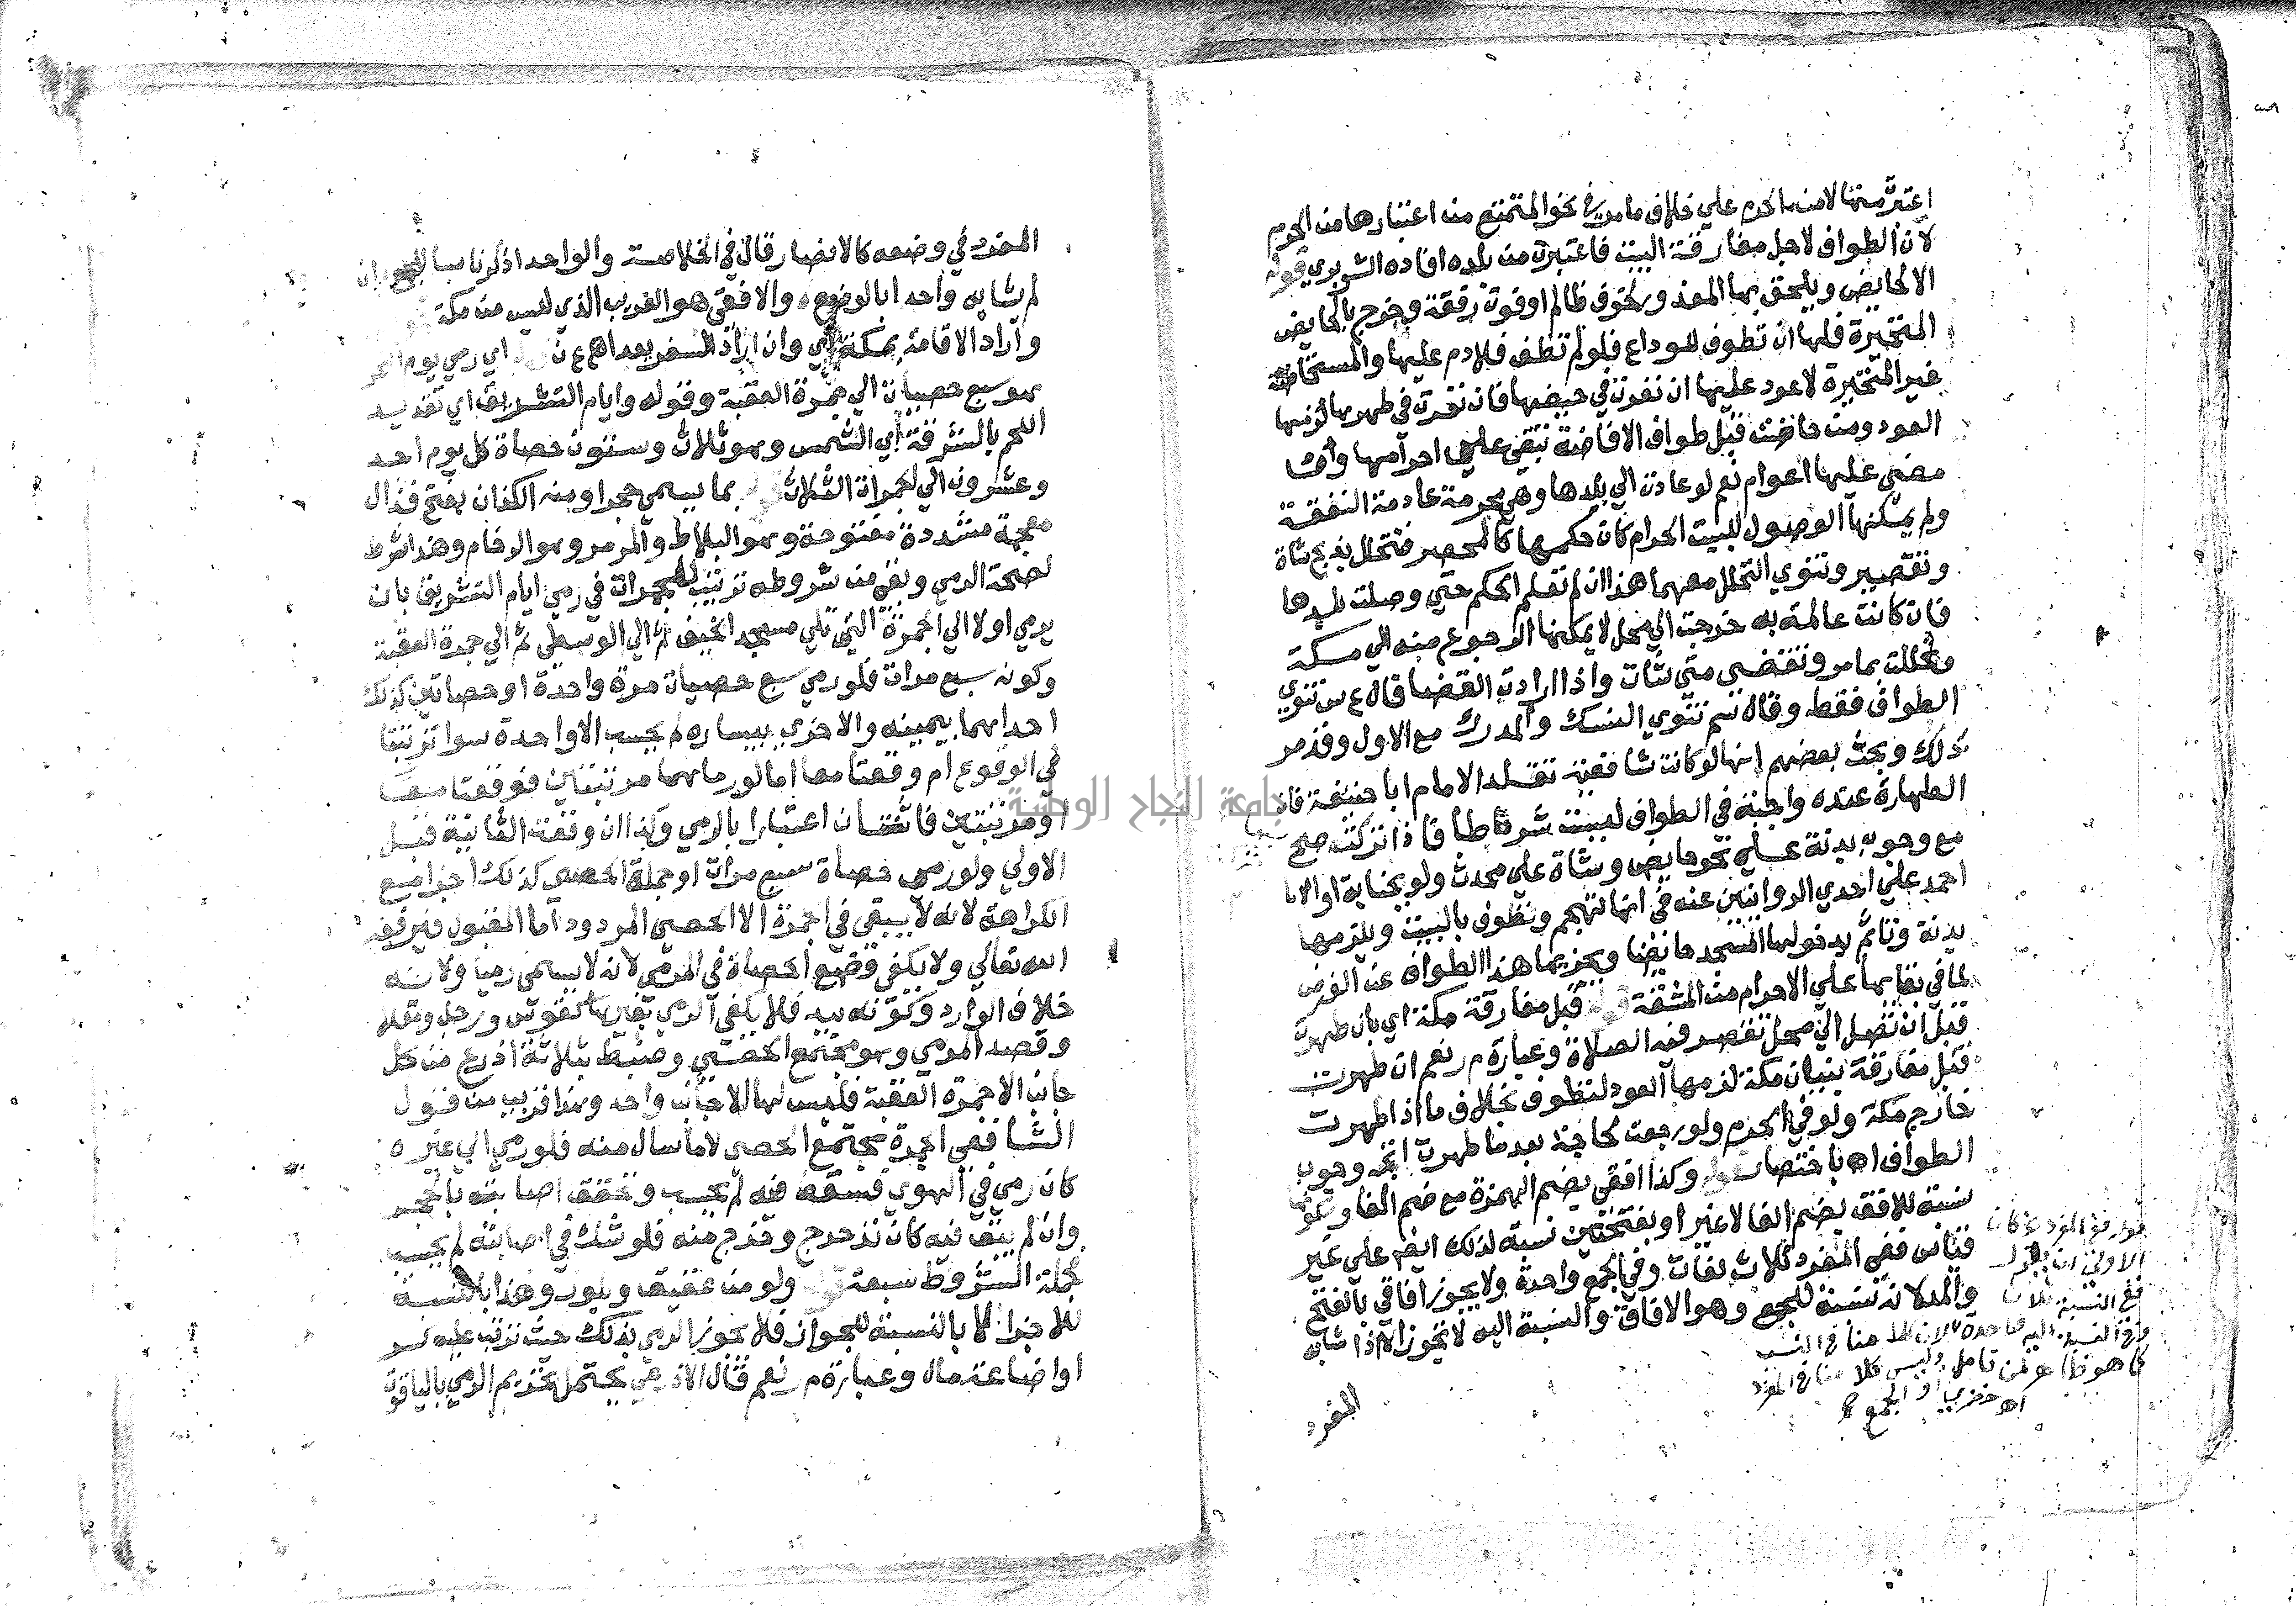 اعتبر منها لا من الحرم علي خلاف ما مر في نحو المتمتع من اعتبارها من الحرم
لان الطواف لاجل مفارقة البيت فاعتبرت من بلده افاده الشوبري قوله
الا لحايض ويلحق بها المعذور كخوف ظالم او فوت رفقة وخرج بالحايض
المتحيرة فلها ان تطوف للوداع فلو لم تطف فلا دم عليها والمستحاضة
غير المتحيرة لا عود عليها ان نفرت في حيضها فان نفرت في طهرها لزمها
العود ومن حاضت قبل طواف الافاضة تبقي علي احرامها وان
مضي عليها اعوام نعم لو عادت الي بلدها وهي محرمة عادمة النفقة
ولم يمكنها الوصول للبيت الحرام كان حكمها كالمحصر فتتحلل بذبح شاة
وتقصير وتنوي التحلل معهما هذا ان لم تعلم الحكم حتي وصلت بلدها
فان كانت عالمة به خرجت الي محل لا يمكنها الرجوع منه الي مكة
وتحللت بما مر وتقضي متي شات واذا ارادت القضا قال ع ش تنوي
الطواف فقط وقال سم تنوي النسك والمدرك مع الاول وقد مر
ذلك وبحث بعضهم انها لو كانت شافعية تقلد الامام ابا حنيفة فان
الطهارة عنده واجبة في الطواف ليست شرطا فاذا تركت صح
مع وجوب بدنة علي نحو حايض وشاة علي محدث ولو بجنابة او الاما
احمد علي احدي الروايتين عنه في انها تهجم وتطوف بالبيت ويلزمها
بدنة وتاثم بدخولها المسجد حايضا ويجزيها هذا الطواف عن الفرض
لما في بقايها علي الاحرام من المشقة قوله قبل مفارقة مكة اي بان طهرت
قبل ان تصل الي محل تقصر فيه الصلاة وعبارة م ر نعم ان طهرت
قبل مفارقة بنيان مكة لزمها العود لتطوف بخلاف ما اذا طهرت
خارج مكة ولو في الحرم ولو رجعت لحاجة بعد ما طهرت اتجه وجوب
الطواف اه باختصار قوله وكذا افقي بضم الهمزة مع ضم الفا وسكونها
نسبة للافق بضم الفا لا غير او بفتحتين نسبة لذلك ايض علي غير
قياس ففي المفرد ثلاث لغات وفي الجمع واحدة ولا يجوز افاقي بالفتح
والمد لانه نسبة للجمع وهو الافاق والنسبة اليه لا تجوز الا اذا شابه
المفرد
قوله ففي المفرد كان
الاولي ان يقول
ففي النسبة ثلاث
كما هو ظاهر لمن تامل وليس كلامنا في المفرد
اه خضري او الجمع
المفرد في وضعه كالانصار قال في الخلاصة والواحد اذكر ناسبا للجمع ان
لم يشابه واحدا بالوضع والافقي هو الغريب الذي ليس من مكة
واراد الاقامة بمكة اي وان اراد السفر بعد اه ع ن اي رمي يوم النحر
وهو سبع حصيات الي جمرة العقبة وقوله وايام التشريق اي تقديد
اللحم بالشرقة اي الشمس وهو ثلاث وستون حصاة كل يوم احد
وعشرون الي الجمرات الثلاث قوله بما يسمي حجرا ومنه الكذان بفتح فذال
معجمة مشددة مفتوحة وهو البلاط والمرمر وهو الرخام وهذا شرط
لصحة الرمي وبقي من شروطه ترتيب للجمرات في رمي ايام التشريق بان
يرمي اولا الي الجمرة التي تلي مسجد الخيف ثم الي الوسطي ثم الي جمرة العقبة
وكونه سبع مرات فلو رمي سبع حصيات مرة واحدة او حصاتين كذلك
احداهما بيمينه والاخري بيساره لم يحسب الا واحدة سوا ترتبتا
في الوقوع ام وقعتا معا اما لو رماهما مرتبتين فوقعتا معا
او مرتبتين فاثنتان اعتبارا بالرمي وكذا ان وقعت الثانية قبل
الاولي ولو رمي حصاة سبع مرات او جملة الحصي كذلك اجزا مع
الكراهة لانه لا يبقي في الجمرة الا الحصي المردود اما المقبول فيرفعه
الله تعالي ولا يكفي وضع الحصاة في المرمي لانه لا يسمي رميا ولانه
خلاف الوارد وكونه بيد فلا يكفي الرمي بغيرها كقوس ورجل ومقلاع
وقصد المرمي وهو مجتمع الحصي وضبط بثلاثة اذرع من كل
جانب الا جمرة العقبة فليس لها الا جانب واحد وهذا قريب من قول
الشافعي الجمرة مجتمع الحصي لا ما سال منه فلو رمي الي غيره
كان رمي في الهوي فسقط فيه لم يحسب وتحقق اصابته بالحجر
وان لم يبق فيه كان تدحرج وخرج منه فلو شك في اصابته لم يحسب
فجملة الشروط سبعة قوله ولو من عقيق وبلور وهذا بالنسبة
للاجزا لا بالنسبة للجواز فلا يجوز الرمي بذلك حيث ترتب عليه كسر
او اضاعة مال وعبارة م ر نعم قال الاذرعي يحتمل تحريم الرمي بالياقوت
جامعة النجاح الوطنية